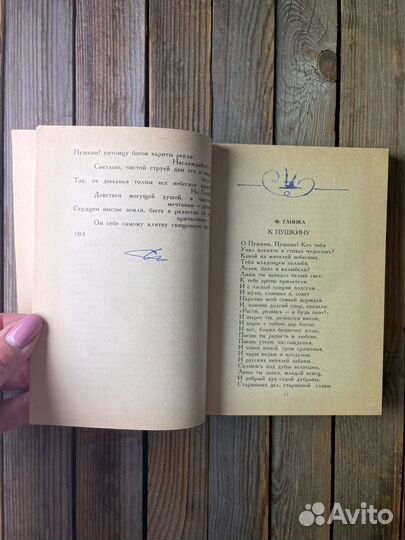 Пушкин! питомцу богов хариты рекли:
Наслаждайся
Светлою, чистой струей дни его в
Так, от дыханья толпы все небесное
Но
Девствен могущей душой, в
мечтаньи
Сердцем выше земли, быть в радостях ей
причастником
Он себе самому клятву священную
1818
Ф. ГЛИНКА
К ПУШКИНУ
О Пушкин, Пушкин! Кто тебя
Учил пленять в стихах чудесных?
Какой из жителей небесных,
Тебя младенцем полюбя,
Лелеял, баял в колыбели?
Лишь ты завидел белый свет,
К тебе эроты прилетели,
И с лаской грации подсели...
И музы, слышал я, совет
Нарочно всей семьей держали
И, кончив долгий спор, сказали:
«Расти, резвись — и будь поэт!»
И вырос ты, резвился вволю,
И взрос с тобою дар богов:
И вот, блажа беспечну долю,
Поешь ты радость и любовь,
Поешь утехи, наслажденья,
И топот коней, гром сраженья,
И чары ведьм и колдунов,
И русских витязей забавы...
Склонясь под дубы величавы,
Лишь ты запел, младой певец,
И добрый дух седой дубравы,
Старинных дел, старинной славы
11
Avito